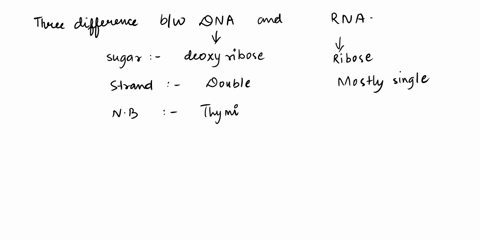 Three difference b/w DNA and RNA.
sugar :- deoxy ribose Ribose
Strand :- Double Mostly single
N.B :- Thymi